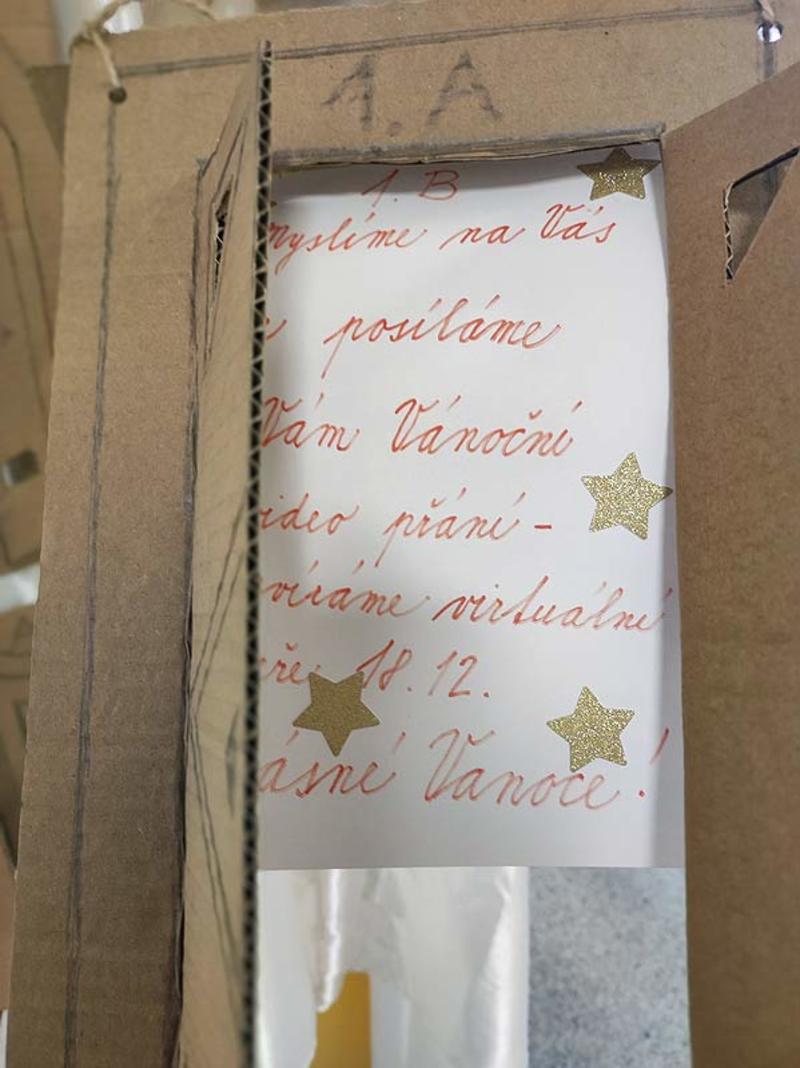 1. A
1. B
myslíme na Vás
posíláme
Vám Vánoční
ideo přání -
víráme virtuální
eře 18.12.
ásné Vanoce!